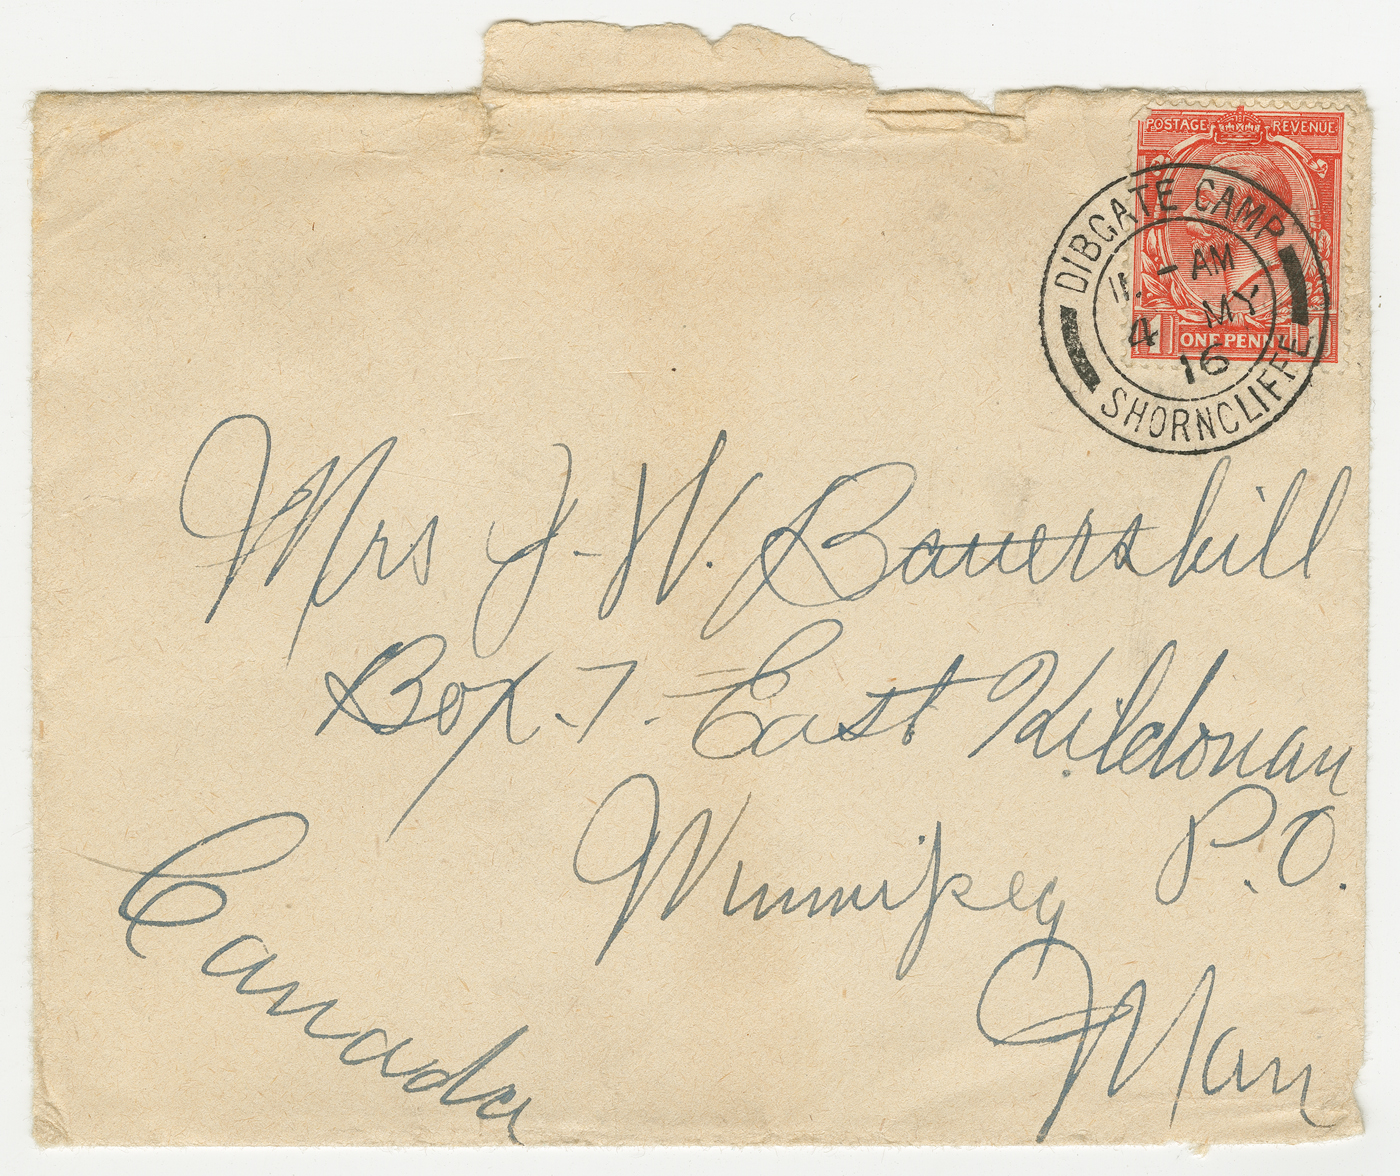 POSTAGE REVENUE
DIBGATE CAMP
11. - AM
4 MY
16
1 ONE PENNY 1
SHORNCLIFFE
Mrs J-W. Bauerskill
Box-7-East Kildonan
P.O.
Winnipeg
Man
Canada